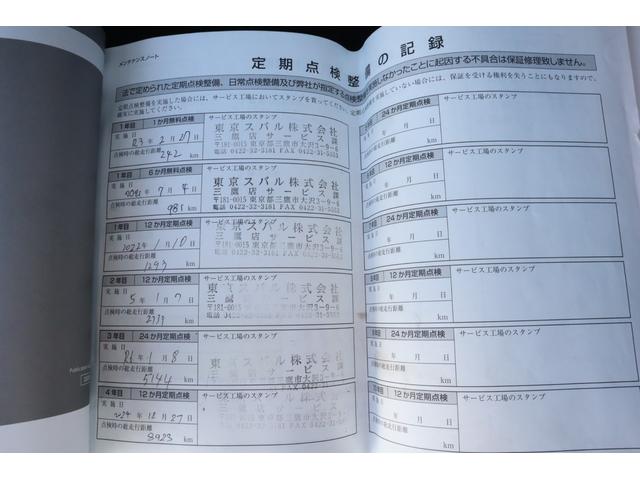 メンテナンスノート
定期点検整備の記録
法で定められた定期点検整備、日常点検整備及び弊社が指定する点検整備
実施しなかったことに起因する不具合は保証修理致しません。
定期点検整備を実施した場合には、サービス工場においてスタンプを貰ってください。
実施していない場合には、保証を受ける権利を失うことにもなりますので、
確実に実施してください。
1年目 1か月無料点検 サービス工場のスタンプ
実施日
R3年2月27日
点検時の総走行距離
242 km
東京スバル株式会社
三鷹店サービス課
〒181-0015 東京都三鷹市大沢3-9-6
電話 0422-32-3181 FAX 0422-31-5553
1年目 6か月無料点検 サービス工場のスタンプ
実施日
2021年7月4日
点検時の総走行距離
981 km
東京スバル株式会社
三鷹店サービス課
〒181-0015 東京都三鷹市大沢3-9-6
電話 0422-32-3181 FAX 0422-31-5553
1年目 12か月定期点検 サービス工場のスタンプ
実施日
2022年1月10日
点検時の総走行距離
1297 km
東京スバル株式会社
三鷹店サービス課
〒181-0015 東京都三鷹市大沢3-9-6
2年目 12か月定期点検 サービス工場のスタンプ
実施日
5年1月7日
点検時の総走行距離
km
東京スバル株式会社
三鷹店サービス課
〒181-0015 東京都三鷹市大沢3-9-6
3年目 24か月定期点検 サービス工場のスタンプ
実施日
R6年1月8日
点検時の総走行距離
5144 km
東京スバル株式会社
4年目 12か月定期点検 サービス工場のスタンプ
実施日
2024年12月27日
点検時の総走行距離
8923 km
24か月定期点検 サービス工場のスタンプ
年 月 日
総走行距離
km
12か月定期点検 サービス工場のスタンプ
年 月 日
総走行距離
km
24か月定期点検 サービス工場のスタンプ
年 月 日
総走行距離
km
12か月定期点検 サービス工場のスタンプ
年 月 日
総走行距離
km
24か月定期点検 サービス工場のスタンプ
年 月 日
総走行距離
km
12か月定期点検 サービス工場のスタンプ
年 月 日
総走行距離
km